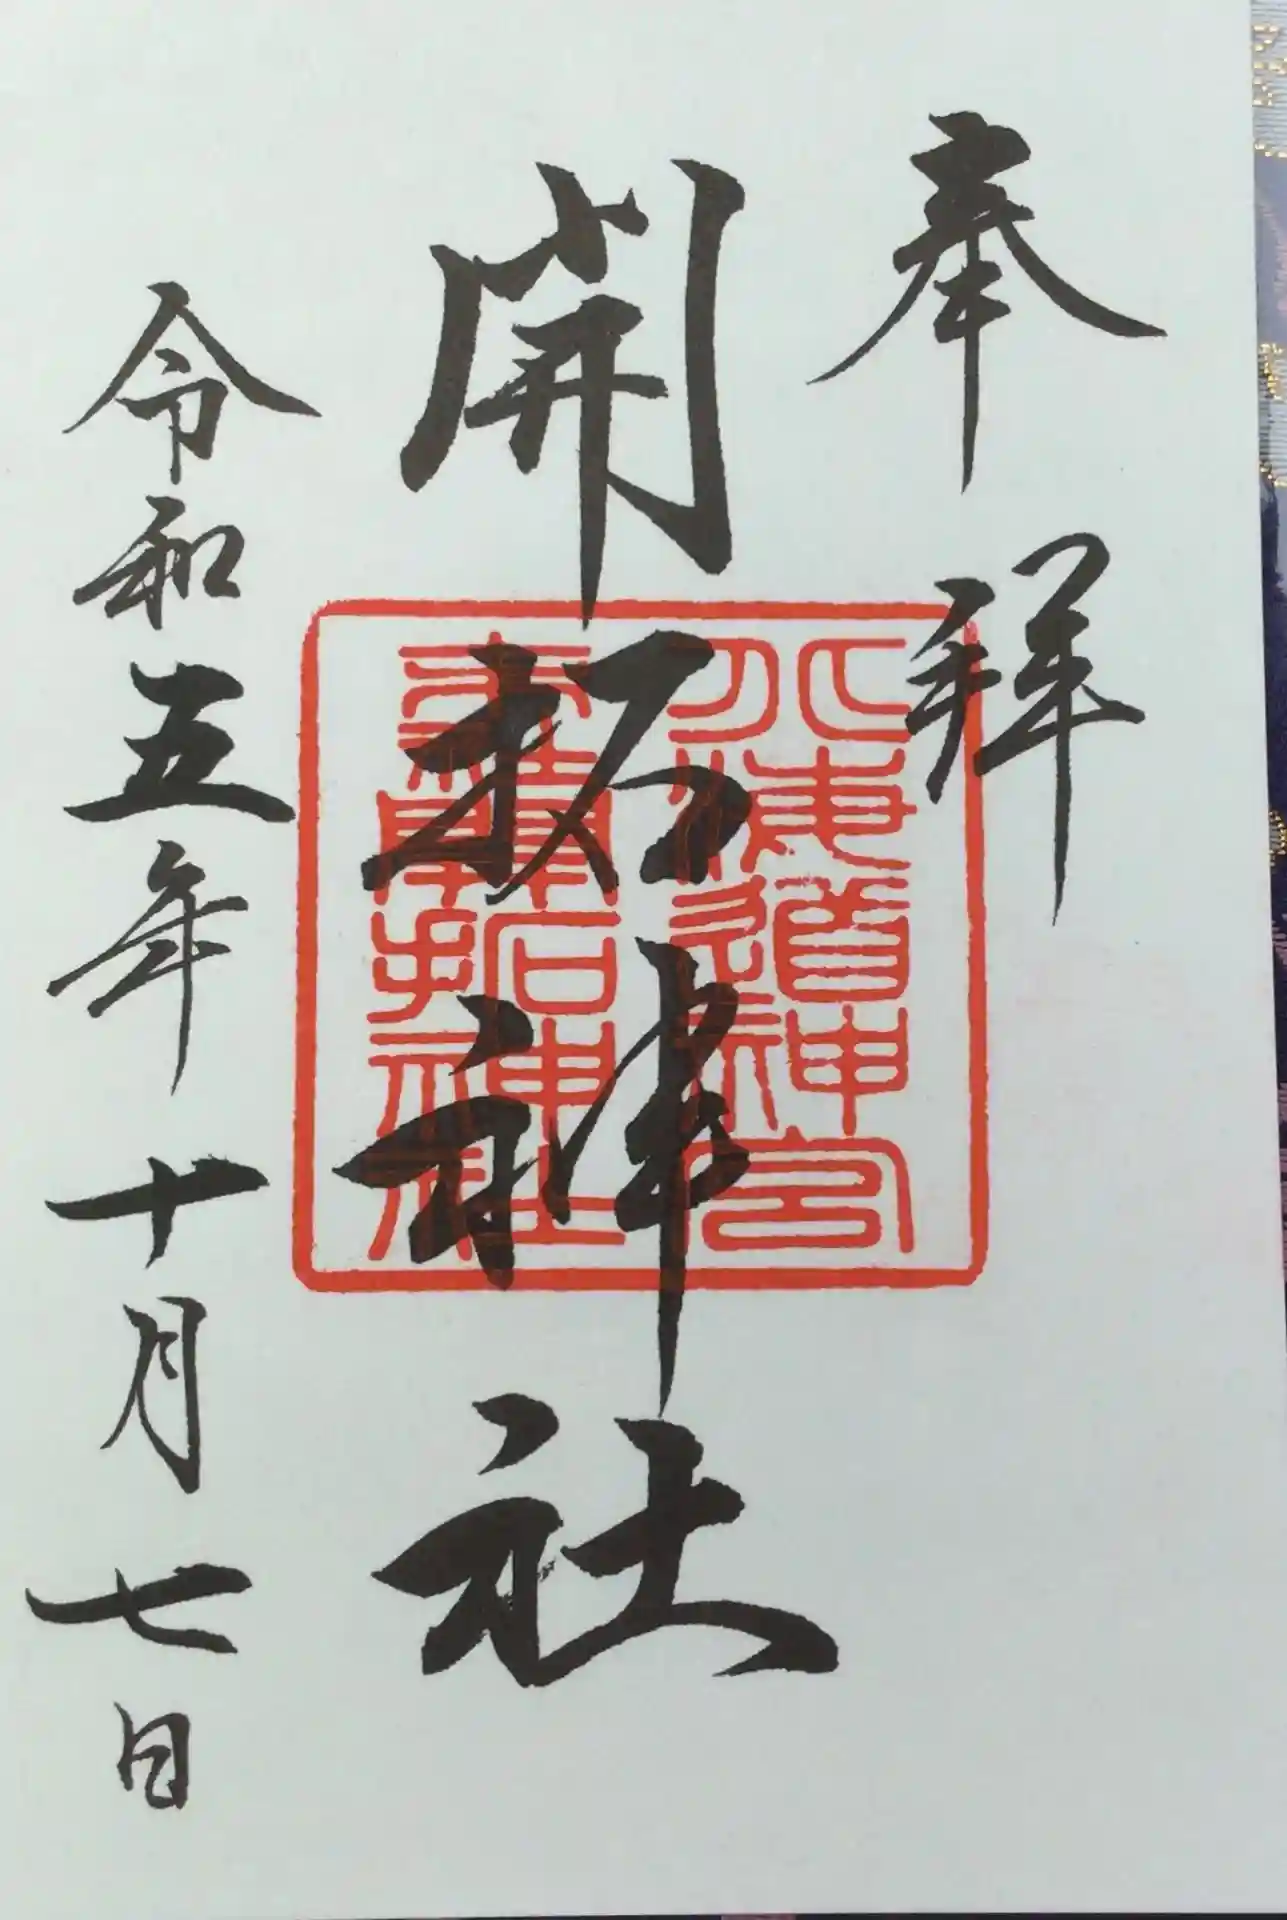 奉拝
開拓神社
北海道神宮
末社開拓神社
令和五年十月七日